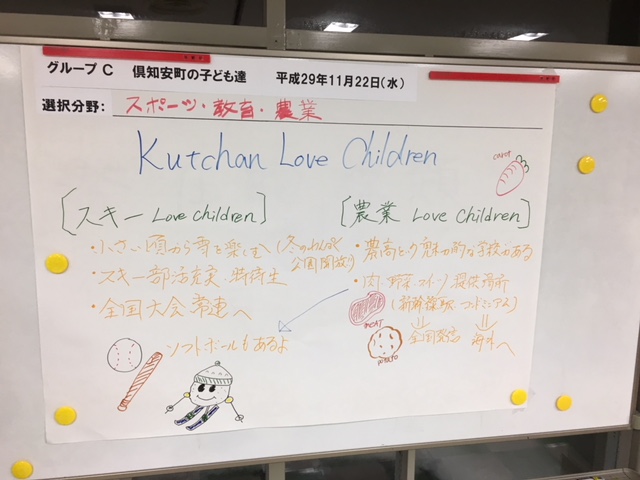 グループC 倶知安町の子ども達 平成29年11月22日(水)
選択分野: スポーツ・教育・農業
Kutchan Love Children
carot
[スキー Love children]
・小さい頃から雪を楽しむ
公園開放)
・スキー部活充実・特待生
・全国大会常連へ
ソフトボールもあるよ
[農業 Love Children]
・農高という魅力的な学校がある
・肉・野菜・スイーツ提供場所
(新幹線駅・コンドミニアム)
MEAT
全国発信 海外へ